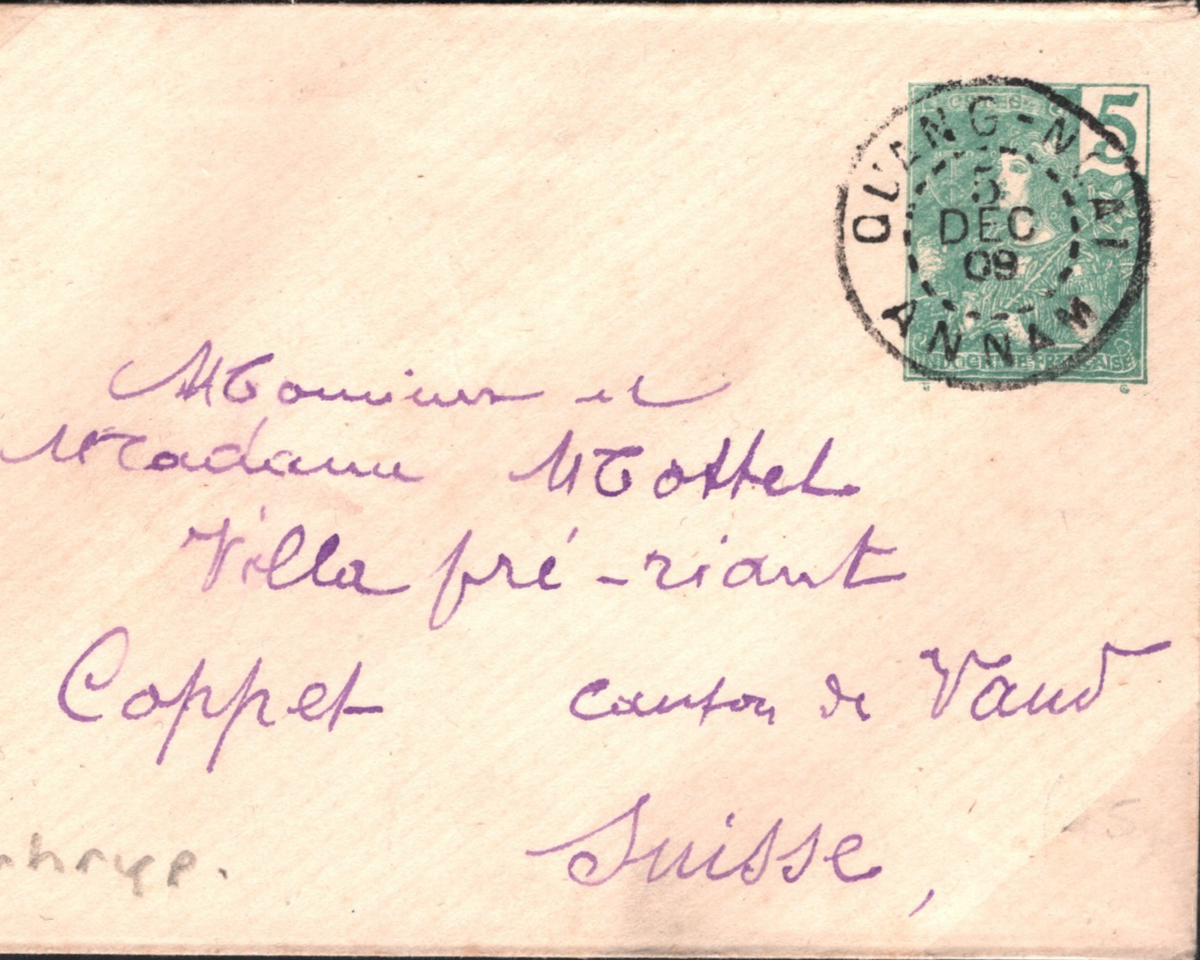 5
QUANG-NGAI
5
DEC
09
ANNAM
INDOCHINE FRANÇAISE
Monsieur et
Madame Mottet
Villa pré-riant
Coppet canton de Vaud
Suisse,